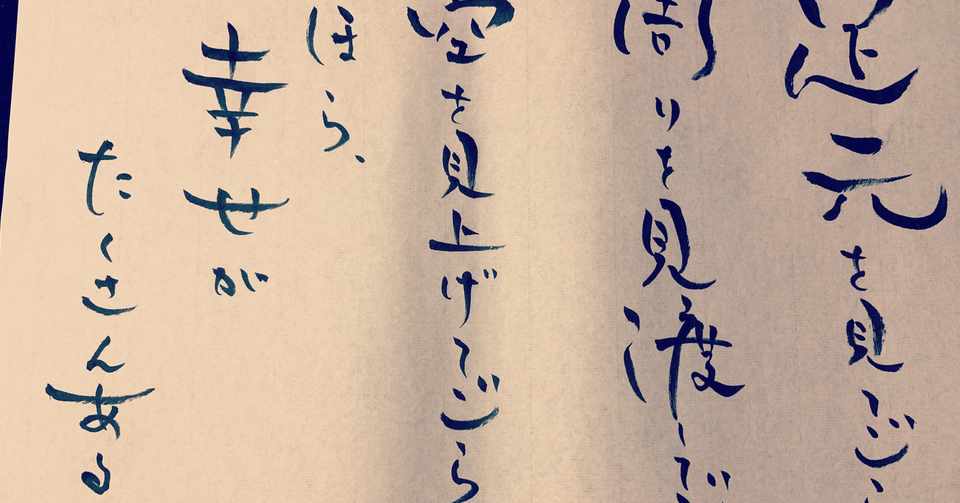 足元を見てご
周りを見渡してご
空を見上げてごら
ほら、
幸せが
たくさんある